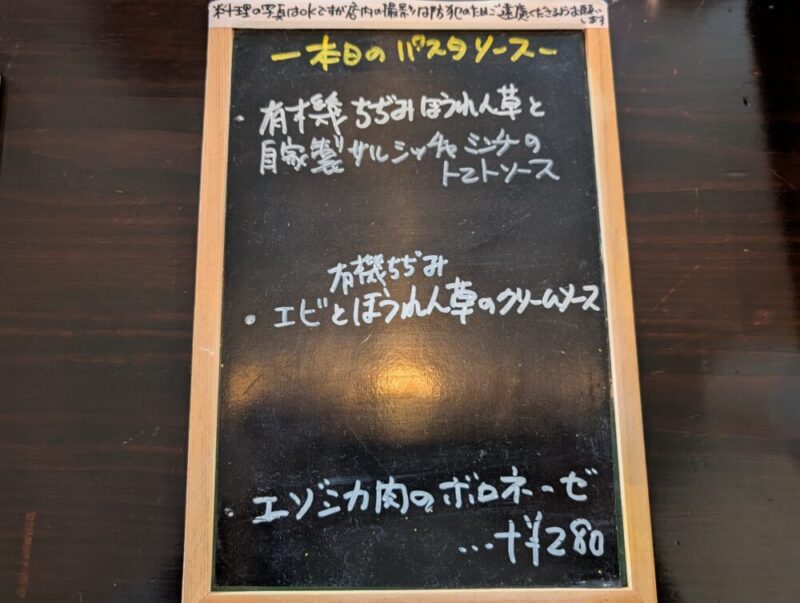 料理の写真はOKですが店内の撮影は防犯のためご遠慮くださるようお願いします
ー本日のパスタソースー
・有機ちぢみほうれん草と
自家製サルシッチャミンチの
トマトソース
有機ちぢみ
・エビとほうれん草のクリームソース
・エゾシカ肉のボロネーゼ
…+¥280